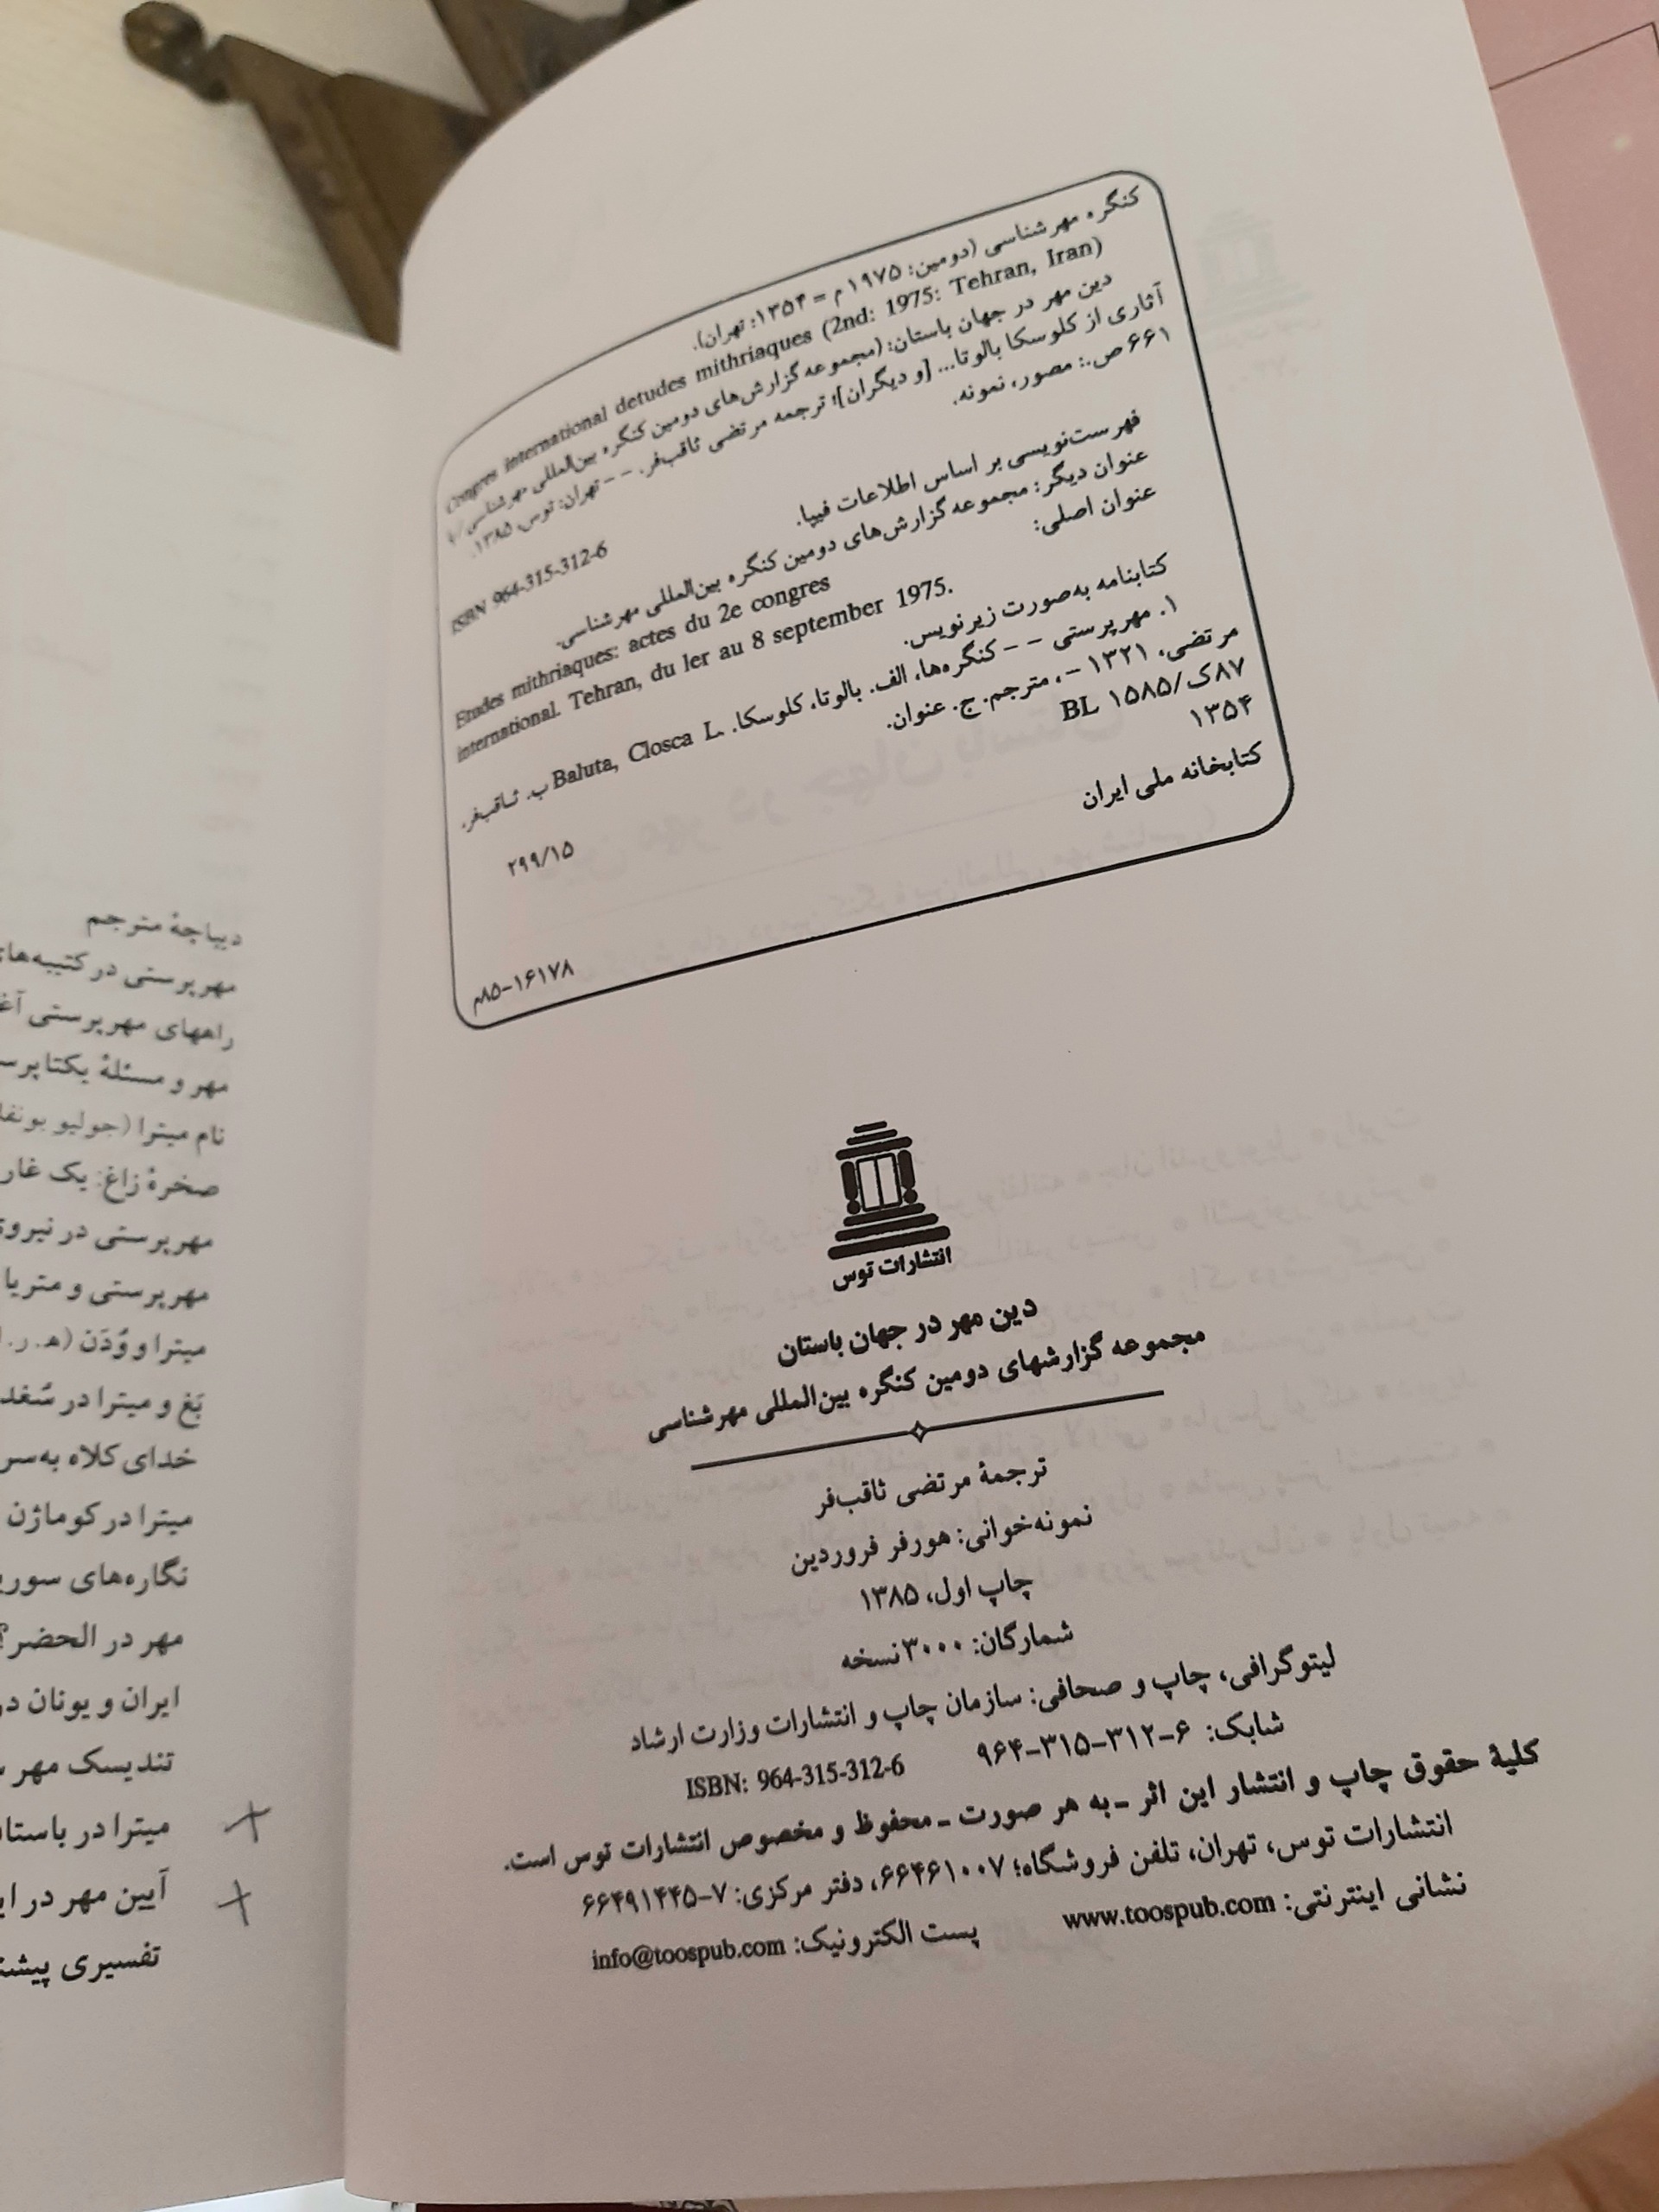 کنگره مهرشناسی (دومین: ۱۹۷۵ م = ۱۳۵۴: تهران).
Congres international detudes mithriaques (2nd: 1975: Tehran, Iran)
دین مهر در جهان باستان: (مجموعه گزارش‌های دومین کنگره بین‌المللی مهرشناسی/ با
آثاری از کلوسکا بالوتا... [و دیگران]؛ ترجمه مرتضی ثاقب‌فر. -- تهران: توس، ۱۳۸۵.
۶۶۱ ص.: مصور، نمونه.
ISBN 964-315-312-6
فهرست‌نویسی بر اساس اطلاعات فیپا.
عنوان دیگر: مجموعه گزارش‌های دومین کنگره بین‌المللی مهرشناسی.
عنوان اصلی:
Etudes mithriaques: actes du 2e congres
international. Tehran, du ler au 8 september 1975.
کتابنامه به‌صورت زیرنویس.
۱. مهرپرستی -- کنگره‌ها، الف. بالوتا، کلوسکا. Baluta, Closca L. ب. ثاقب‌فر،
مرتضی، ۱۳۲۱ -، مترجم. ج. عنوان.
۸۷ک/۱۵۸۵ BL
۲۹۹/۱۵
۱۳۵۴
کتابخانه ملی ایران
م۸۵-۱۶۱۷۸
انتشارات توس
دین مهر در جهان باستان
مجموعه گزارشهای دومین کنگره بین‌المللی مهرشناسی
ترجمهٔ مرتضی ثاقب‌فر
نمونه‌خوانی: هورفر فروردین
چاپ اول، ۱۳۸۵
شمارگان: ۳۰۰۰ نسخه
لیتوگرافی، چاپ و صحافی: سازمان چاپ و انتشارات وزارت ارشاد
شابک: ۶-۳۱۲-۳۱۵-۹۶۴ ISBN: 964-315-312-6
کلیهٔ حقوق چاپ و انتشار این اثر ـ به هر صورت ـ محفوظ و مخصوص انتشارات توس است.
انتشارات توس، تهران، تلفن فروشگاه؛ ۶۶۴۶۱۰۰۷، دفتر مرکزی: ۷-۶۶۴۹۱۴۴۵
نشانی اینترنتی: www.toospub.com پست الکترونیک: info@toospub.com
دیباچهٔ مترجم
مهرپرستی در کتیبه‌های
راههای مهرپرستی
مهر و مسئلهٔ
نام میترا (جولیو
صخرهٔ زاغ: یک غار
مهرپرستی در
مهرپرستی و متریا
میترا و وُدَن (ه. ر.
بَغ و میترا در سُغد
خدای کلاه به‌سر
میترا در کوماژن
نگاره‌های
مهر در الحضر؟
ایران و یونان
تندیسک مهر
میترا در
آیین مهر در
تفسیری